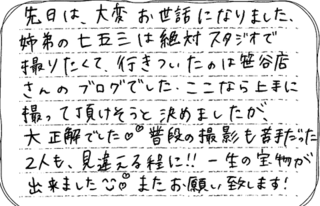 先日は、大変お世話になりました。
姉弟の七五三は絶対スタジオで
撮りたくて、行きついたのは笹谷店
さんのブログでした。ここなら上手に
撮って頂けそうと決めましたが、
大正解でした♡♡普段の撮影も苦手だった
2人も、見違える程に!!一生の宝物が
出来ました☺♡またお願い致します!